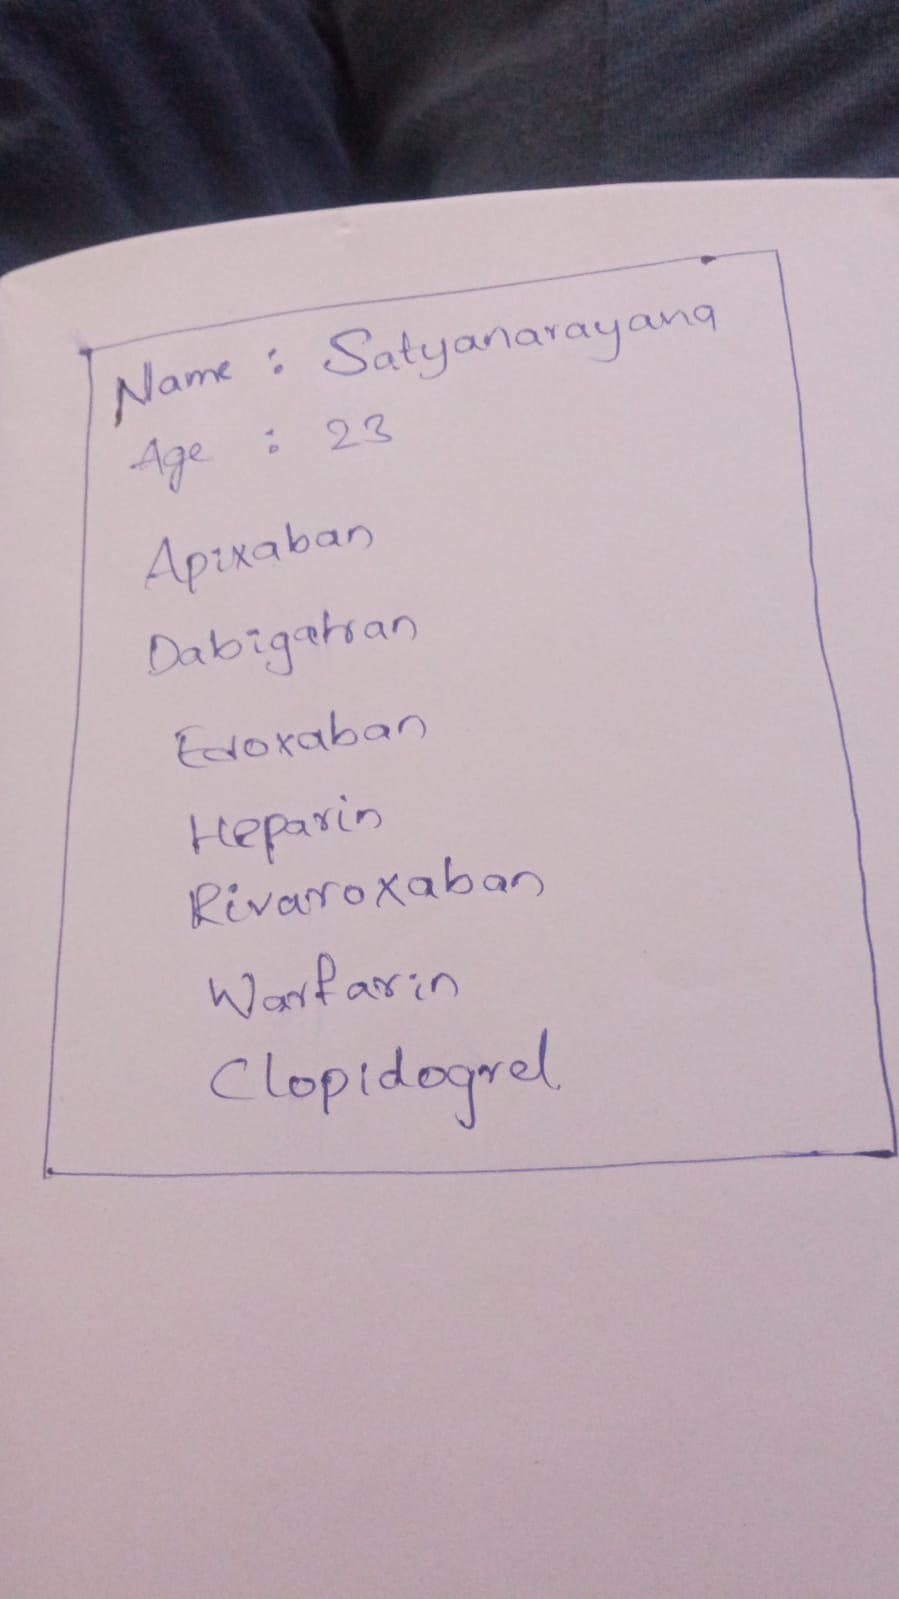 Name : Satyanarayana
Age : 23
Apixaban
Dabigatran
Edoxaban
Heparin
Rivaroxaban
Warfarin
Clopidogrel